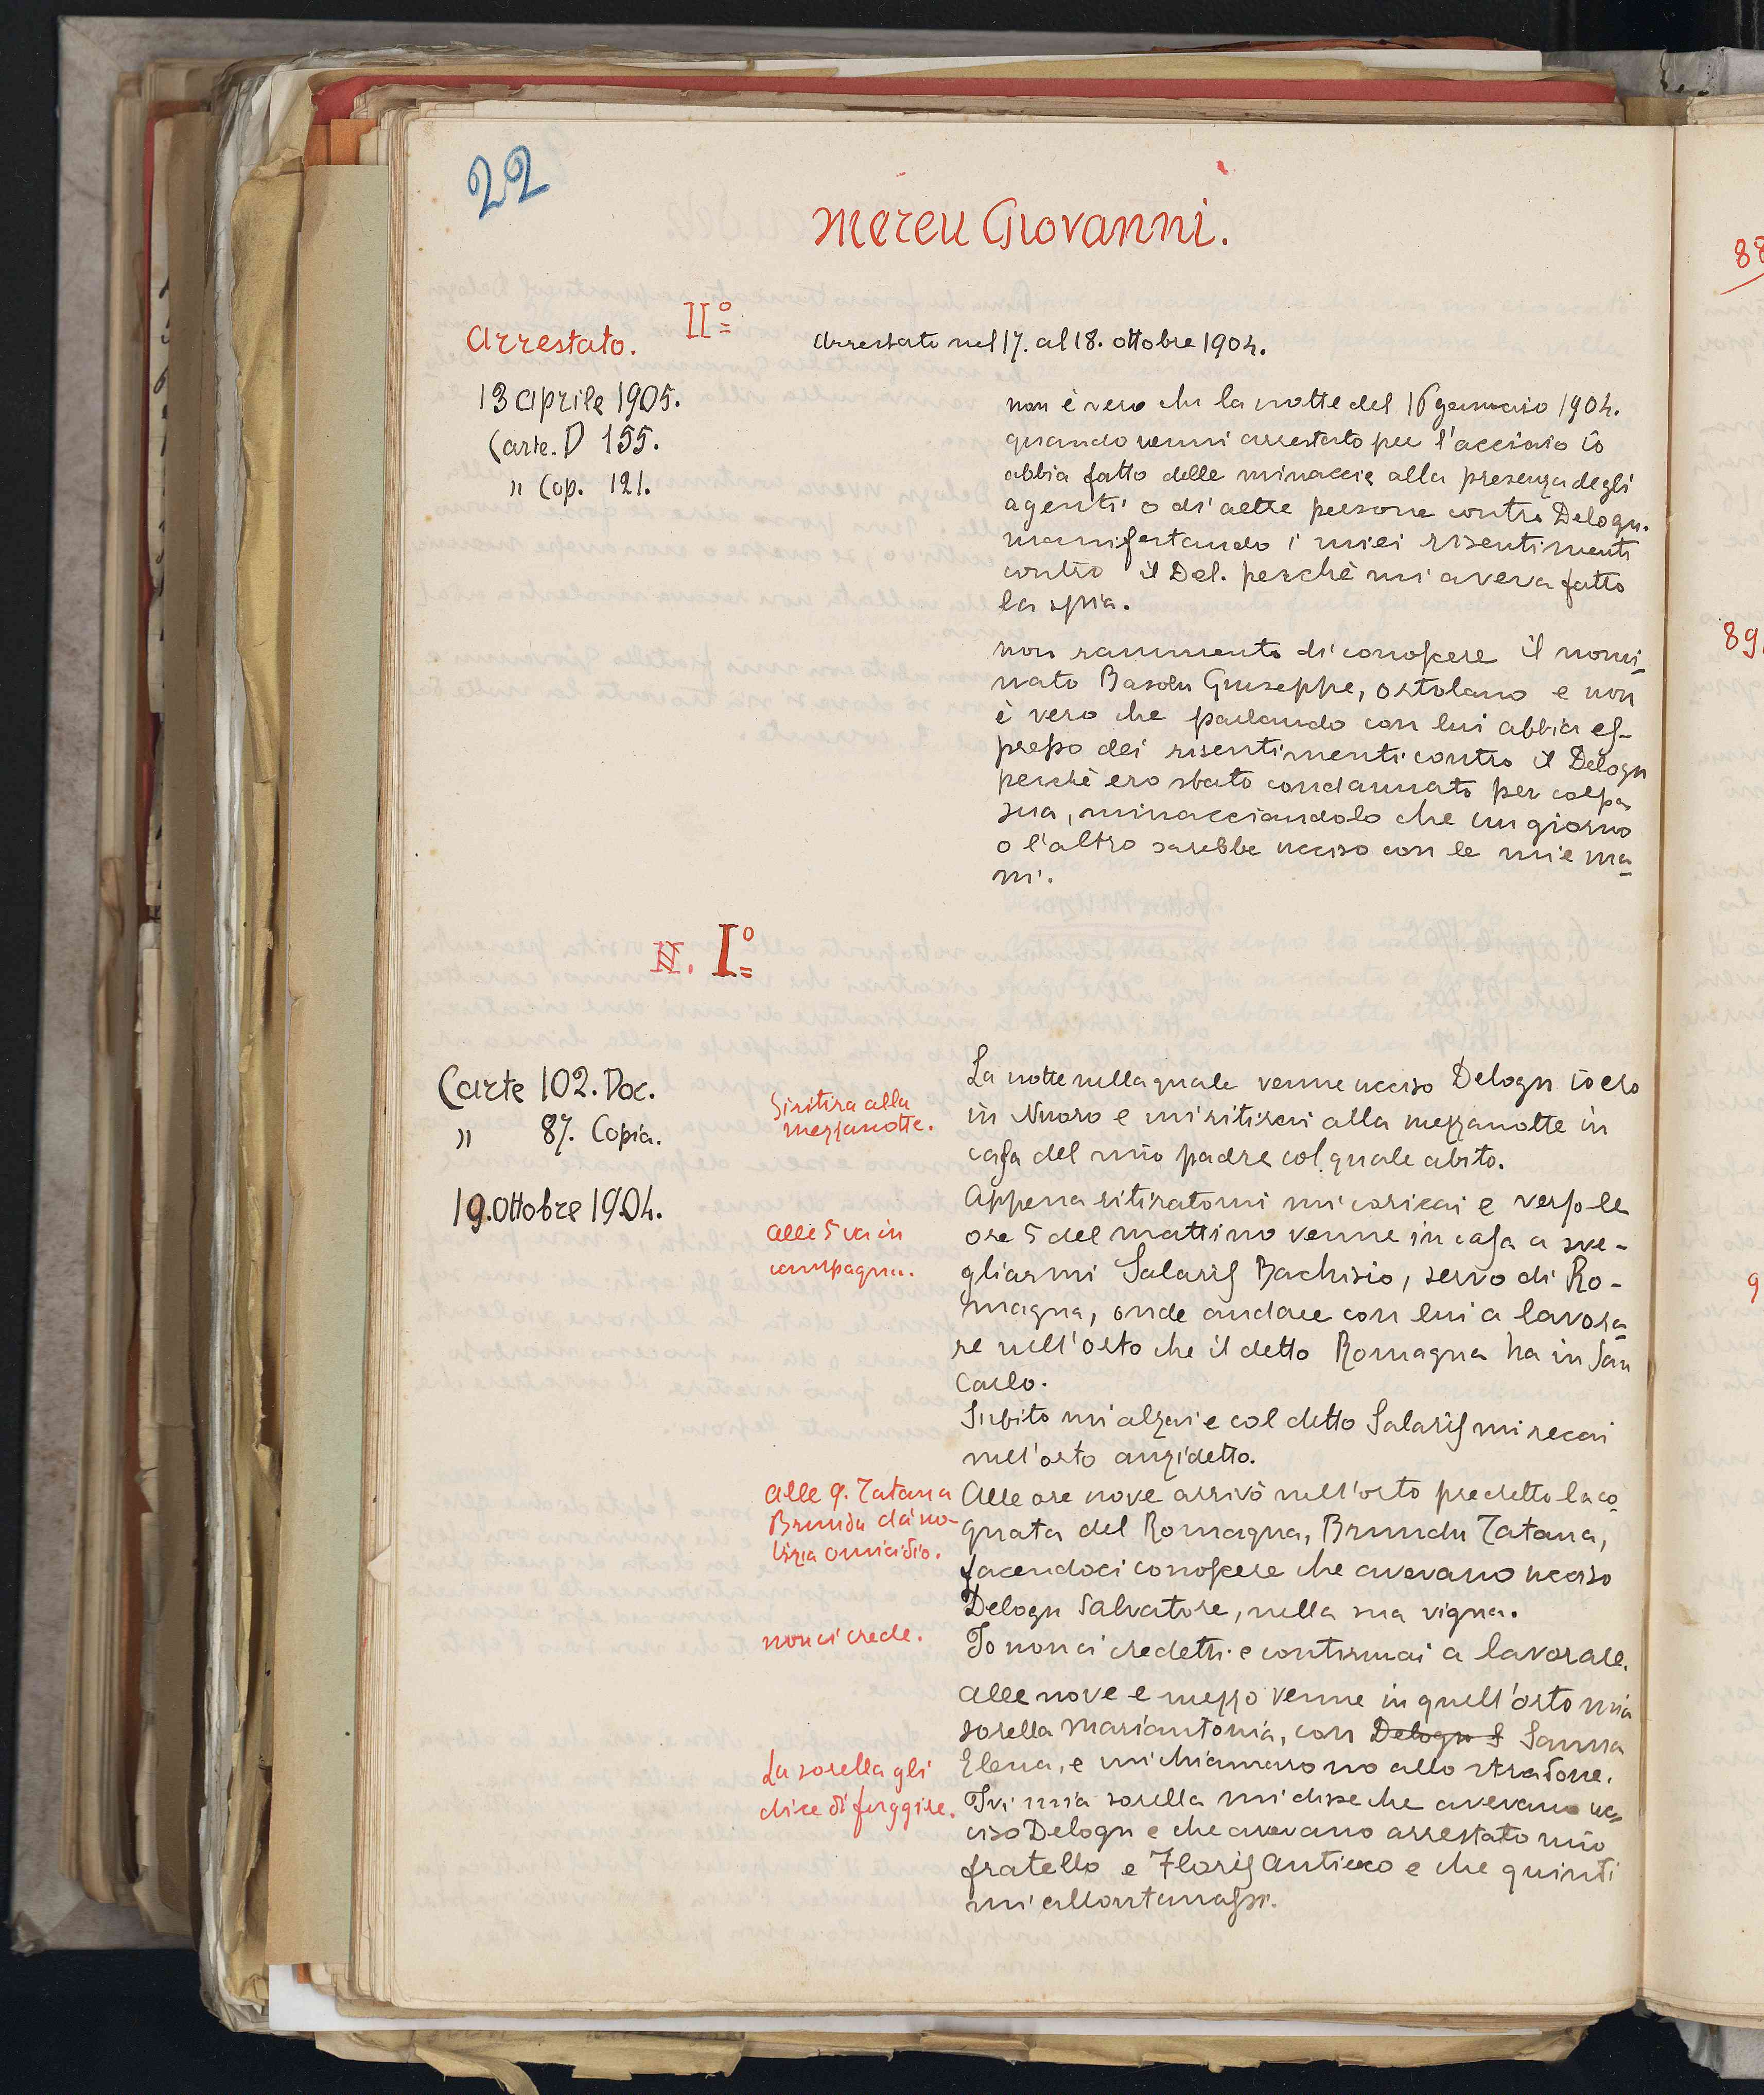 22
Mereu Giovanni.
II°
Arrestato.
Arrestato nel 17. al 18. ottobre 1904.
13 aprile 1905.
Carte. D 155.
" Cop. 121.
non è vero che la notte del 16 gennaio 1904.
quando venni arrestato per l'acciaio io
abbia fatto delle minaccie alla presenza degli
agenti o di altre persone contro Delogu.
manifestando i miei risentimenti
contro il Del. perchè mi aveva fatto
la spia.
non rammento di conoscere il nomi-
nato Basolu Giuseppe, ortolano e non
è vero che parlando con lui abbia es-
presso dei risentimenti contro il Delogu
perchè ero stato condannato per colpa
sua, minacciandolo che un giorno
o l'altro sarebbe ucciso con le mie ma-
ni.
I°
Carte 102. Doc.
" 87. Copia.
19. Ottobre 1904.
Si ritira alla
mezzanotte.
La notte nella quale venne ucciso Delogu io ero
in Nuoro e mi ritirai alla mezzanotte in
casa del mio padre col quale abito.
Appena ritiratomi mi coricai e verso le
alle 5 va in
campagna.
ore 5 del mattino venne in casa a sve-
gliarmi Salaris Bachisio, servo di Ro-
magna, onde andare con lui a lavora-
re nell'orto che il detto Romagna ha in San
Carlo.
Subito mi alzai e col detto Salaris mi recai
nell'orto anzidetto.
alle 9. Tatana
Brundu dà no-
tizia omicidio.
Alle ore nove arrivò nell'orto predetto la co-
gnata del Romagna, Brundu Tatana,
facendoci conoscere che avevano ucciso
Delogu Salvatore, nella sua vigna.
non ci crede.
Io non ci credetti e continuai a lavorare.
Alle nove e mezzo venne in quell'orto mia
sorella Mariantonia, con Delogu S Sanna
Elena, e mi chiamarono allo stradone.
La sorella gli
dice di fuggire.
Ivi mia sorella mi disse che avevano uc-
ciso Delogu e che avevano arrestato mio
fratello e Floris Antioco e che quindi
mi allontanassi.
88
89
9